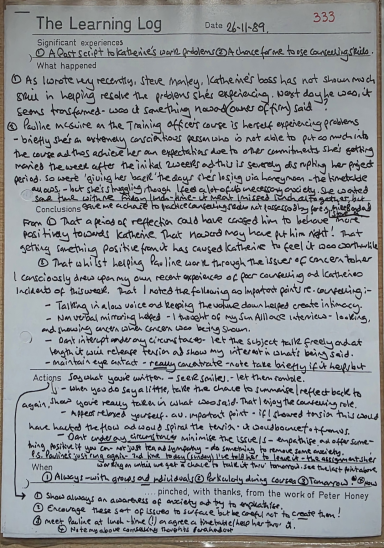 333
The Learning Log Date 26-11-89.
Significant experiences
① A Post script to Katherine's work problems ② A chance for me to use counselling skills.
What happened
① As I wrote very recently, Steve Manley, Katherine's boss has not shown much
skill in helping resolve the problems she's experiencing. Next day he was, it
seems transformed - was it something Howard (owner of firm) said?
② Pauline McGuire on the Training Officer course is herself experiencing problems
- briefly she's an extremely conscientious person who is not able to put as much into
the course and thus achieve her own expectations due to other commitments. She's getting
married the week after the initial weeks and this is severely disrupting her project
period. So we're 'giving her back' the days she's losing via honeymoon - the timetable
allows - but she's struggling though I feel a lot of unnecessary anxiety. She wanted
some time with me
Conclusions gave me a chance to practice counselling
From ① That a period of reflection could have caused him to behave more
positively towards Katherine. That Howard may have put him right! That
getting something positive from it has caused Katherine to feel it was worthwhile
② That whilst helping Pauline work through the issues of concern to her
I consciously drew upon my own recent experiences of poor counselling and Katherine's
incidents of this week. That I noted the following as important points re. counselling:-
- Talking in a low voice and keeping the volume down helped create intimacy.
- Non verbal mirroring helped - I thought of my Sun Alliance interview - looking,
and showing concern when concern was being shown.
- Dont interrupt under any circumstances - let the subject talk freely and at
length it will release tension and show my interest in what's being said.
- maintain eye contact - really concentrate - note take briefly if it helps but
Actions say what you've written - see &d smiles. - let them ramble.
- When you do say a little, take the chance to summarise/reflect back to
again show you're really taken in what was said. That I enjoy the counselling role.
- Appear relaxed yourself. a v. important point - if I showed tension this would
have hacked the flow and would spiral the tension - it would bounce off of us.
- Dont under any circumstances minimise the issue/s - empathise and offer some-
thing positive if you can not just tea and sympathy - do something to remove some anxiety.
P.S. Pauline's just rung again
working on when we get a chance to talk it thru tomorrow. see the last point above
When
① Always - with groups and individuals ② Particularly during courses ③ Tomorrow
...pinched, with thanks, from the work of Peter Honey
① Show always an awareness of anxiety and try to empathise.
② Encourage these sort of issues to surface but be careful not to create them!
③ meet Pauline at lunch-time (!) and agree a timetable/help her thru it.
④ Note my above counselling thoughts for a handout